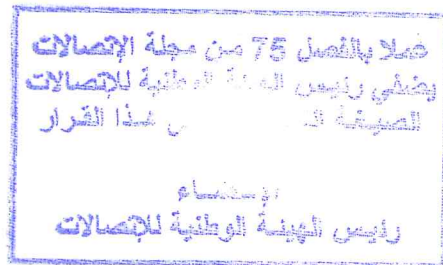 عملا بالفصل 75 من مجلة الإتصالات
يمضي رئيس الهيئة الوطنية للإتصالات
الصيغة هذا القرار
الإمضاء
رئيس الهيئة الوطنية للإتصالات